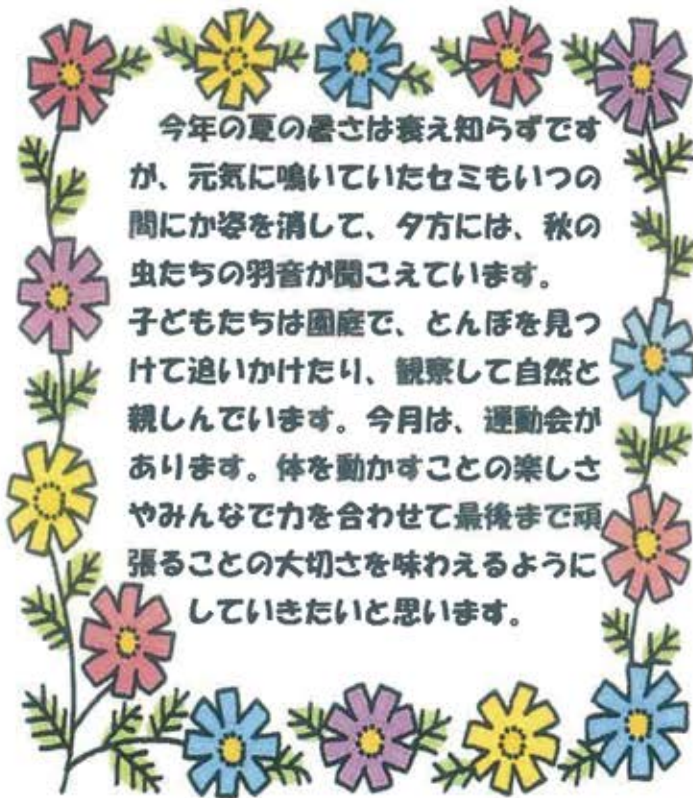 今年の夏の暑さは衰え知らずです
が、元気に鳴いていたセミもいつの
間にか姿を消して、夕方には、秋の
虫たちの羽音が聞こえています。
子どもたちは園庭で、とんぼを見つ
けて追いかけたり、観察して自然と
親しんでいます。今月は、運動会が
あります。体を動かすことの楽しさ
やみんなで力を合わせて最後まで頑
張ることの大切さを味わえるように
していきたいと思います。